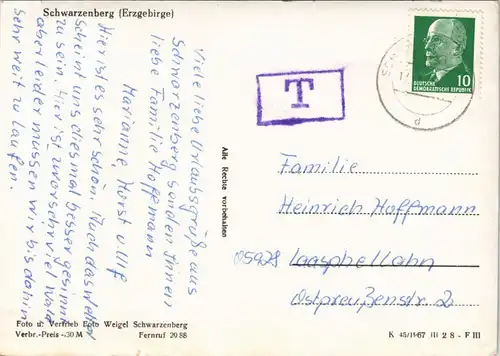 Schwarzenberg (Erzgebirge)
Viele liebe Urlaubsgrüße aus
Schwarzenberg senden Ihnen
liebe Familie Hoffmann
Marianne Horst u. Ulf
Hier ist es sehr schön. Auch das Wetter
scheint uns diesmal besser gesinnt
zu sein. Hier ist zwar sehr viel Wald
aber leider müssen wir bis dahin
sehr weit zu laufen.
T
DEUTSCHE
DEMOKRATISCHE REPUBLIK
10
d
Alle Rechte vorbehalten
Familie
Heinrich Hoffmann
05928 Laasphe/Lahn
Ostpreußenstr. 2
Foto u. Vertrieb Foto Weigel Schwarzenberg
Verbr.-Preis -,30 M Fernruf 20 88
K 45/II-67 III 2 8 - F III